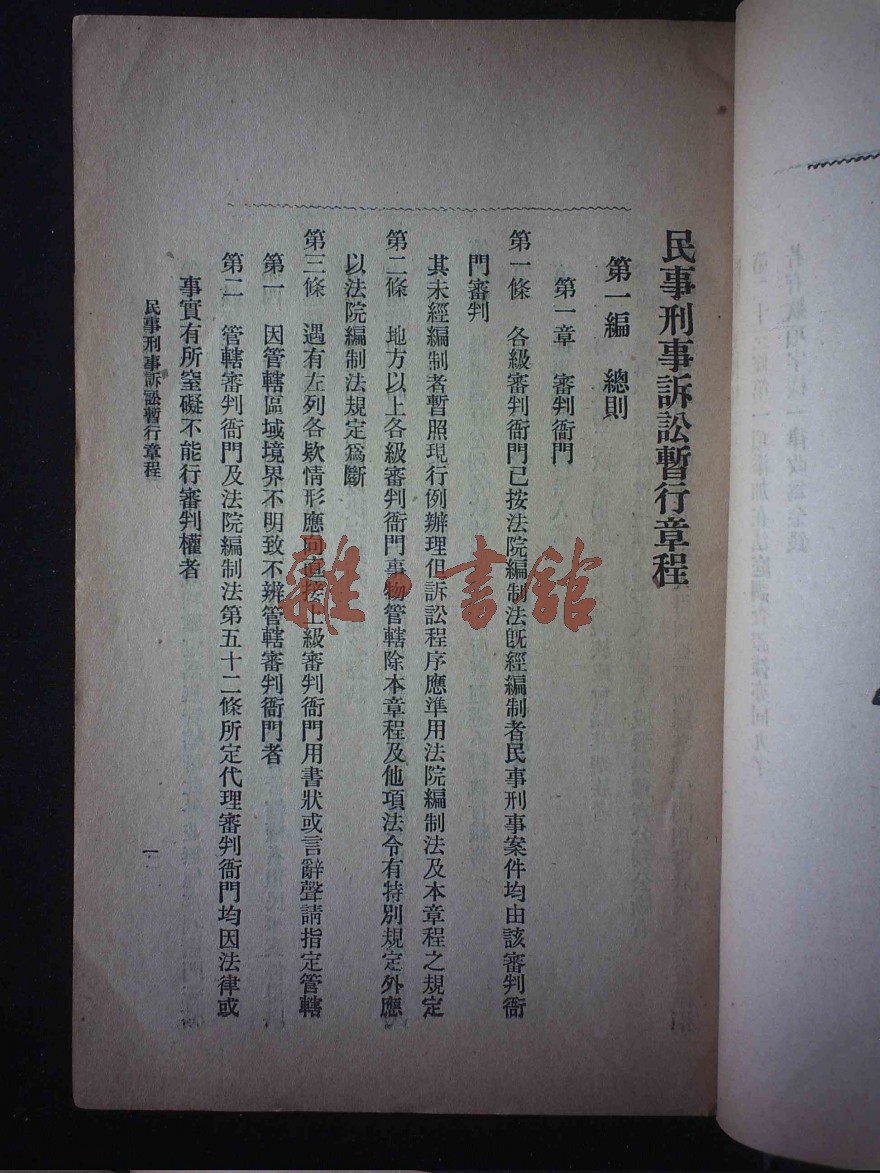 民事刑事訴訟暫行章程
第一編　總則
第一章　審判衙門
第一條　各級審判衙門已按法院編制法既經編制者民事刑事案件均由該審判衙
門審判
其未經編制者暫照現行例辦理但訴訟程序應準用法院編制法及本章程之規定
第二條　地方以上各級審判衙門事物管轄除本章程及他項法令有特別規定外應
以法院編制法規定爲斷
第三條　遇有左列各款情形應向直接上級審判衙門用書狀或言辭聲請指定管轄
第一　因管轄區域境界不明致不辨管轄審判衙門者
第二　管轄審判衙門及法院編制法第五十二條所定代理審判衙門均因法律或
事實有所窒礙不能行審判權者
民事刑事訴訟暫行章程
一
雜·書館